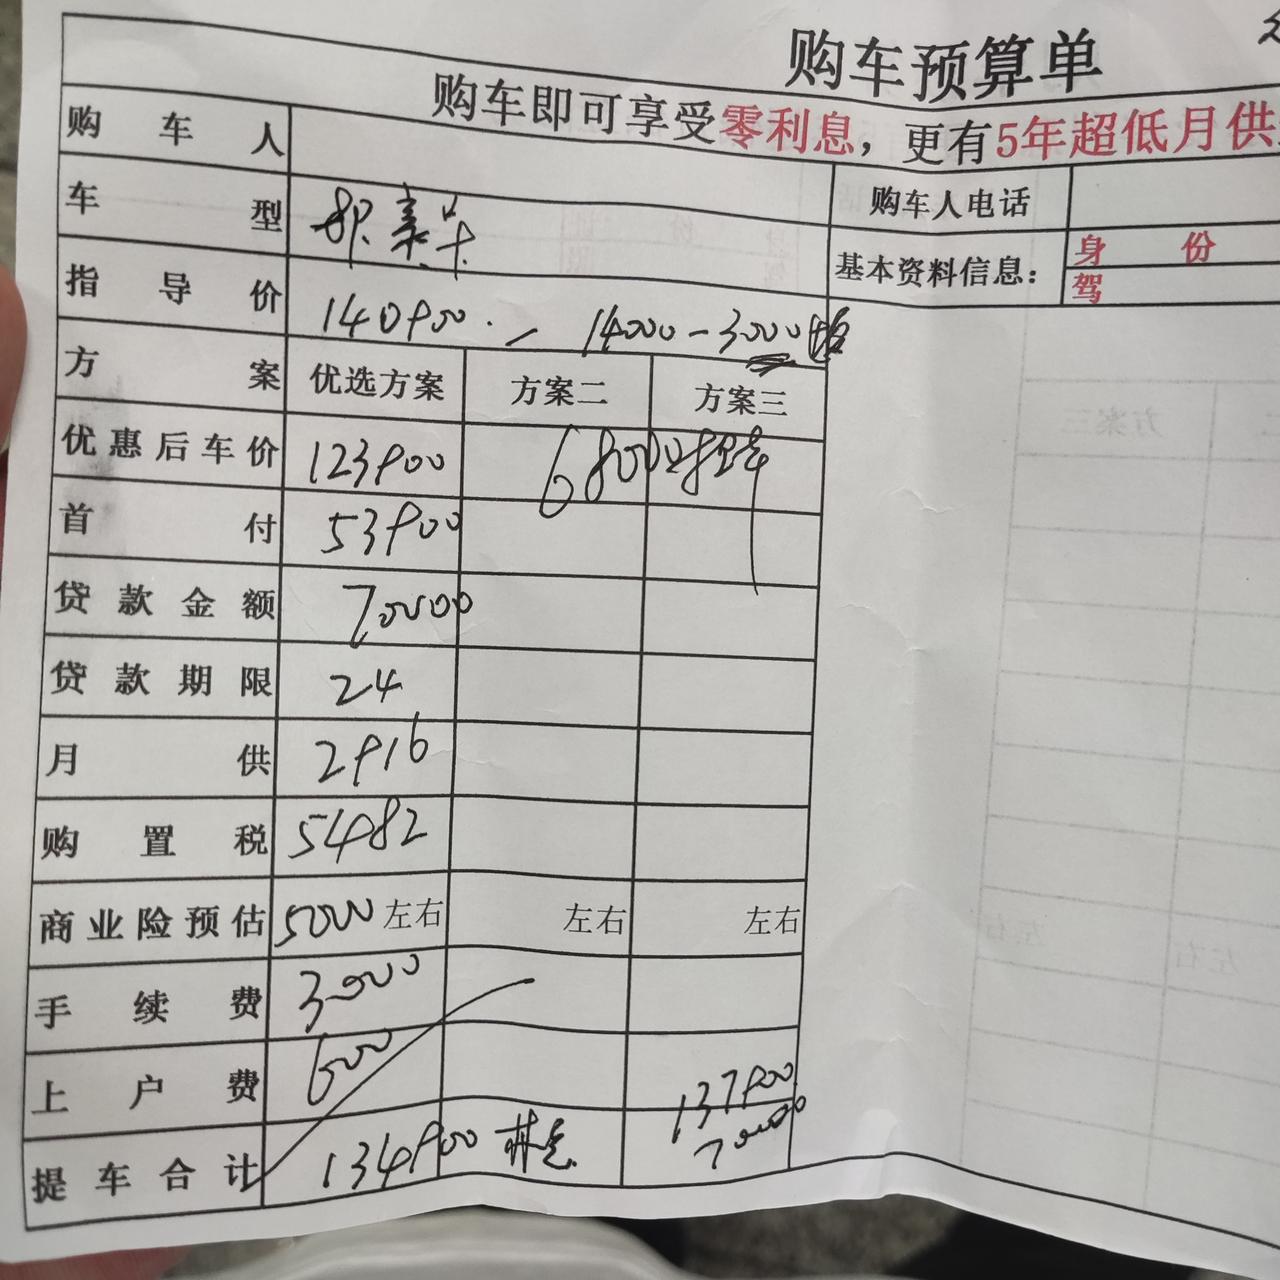 购车预算单
购车即可享受零利息，更有5年超低月供
购车人
购车人电话
车型
基本资料信息：
身份
驾
指导价 140900. - 14000-3000
方案 优选方案 方案二 方案三
优惠后车价 123900 6800
首付 53900
贷款金额 70000
贷款期限 24
月供 2916
购置税 5482
商业险预估 5000左右 左右 左右
手续费 3000
上户费 600
137900
70000
提车合计 134900